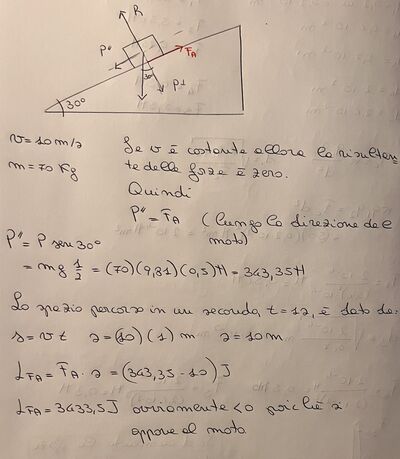 R
P"
FA
30
P⊥
30°
v = 10 m/s Se v è costante allora la risultan-
m = 70 Kg te delle forze è zero.
Quindi
P" = FA (lungo la direzione del
moto)
P" = P sen 30°
= mg 1/2 = (70)(9,81)(0,5)N = 343,35N
Lo spazio percorso in un secondo, t = 1s, è dato da:
s = v t s = (10)(1) m s = 10m
LFA = FA · s = (343,35 · 10) J
LFA = 3433,5 J ovviamente <0 poiché si
oppone al moto